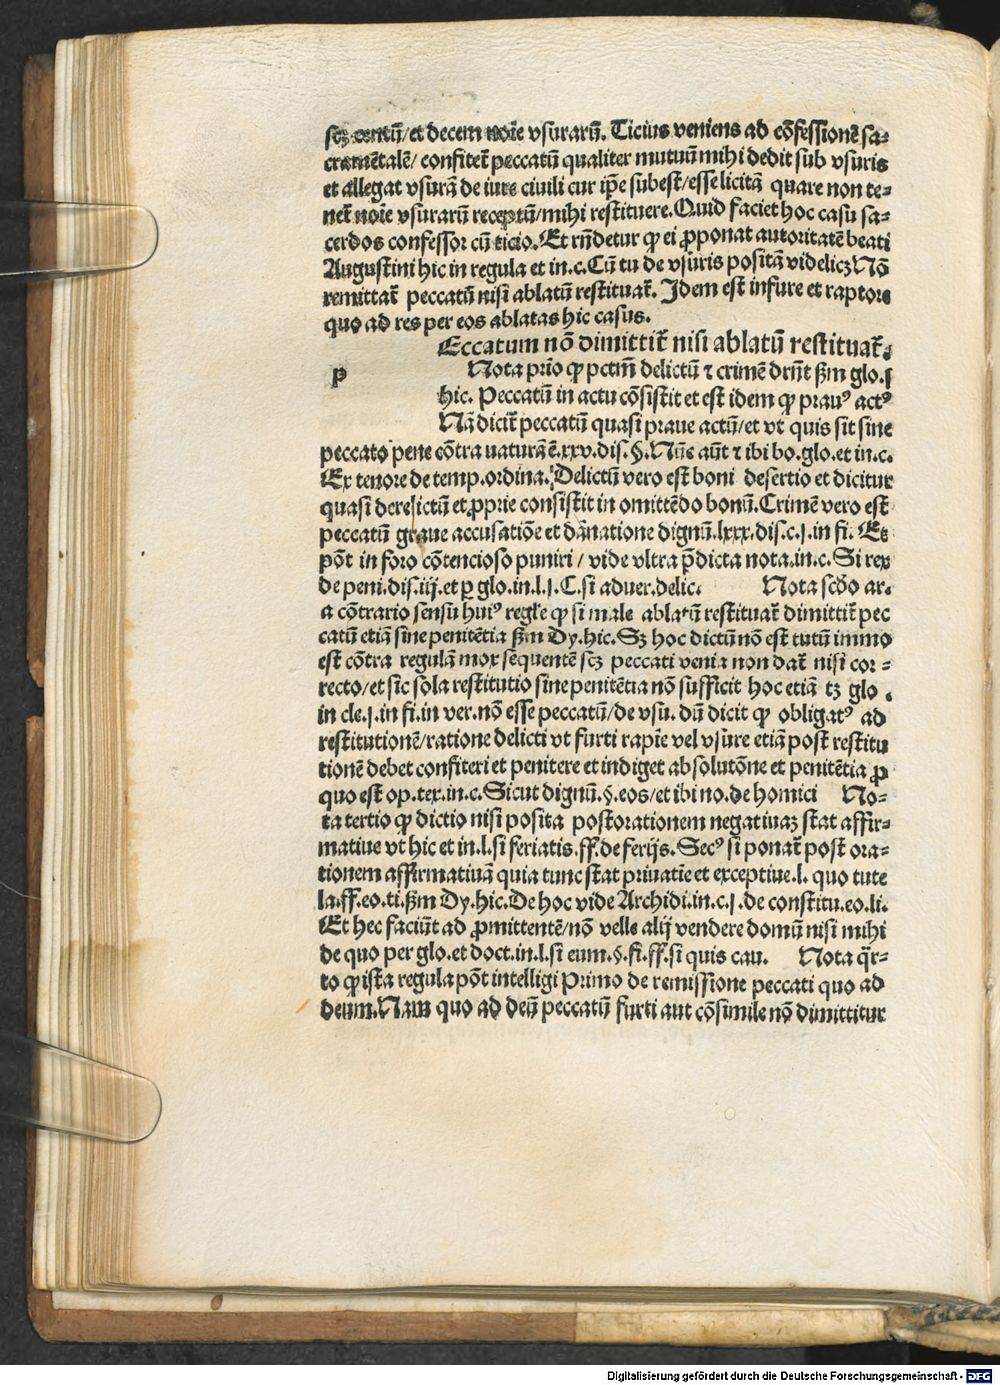 scꝫ centū/et decem noīe vsurarū. Ticius veniens ad cōfessionē sa⸗
cramētalē/ confitet̄ peccatū qualiter mutuū mihi dedit sub vsuris
et allegat vsurā de iure ciuili cur ip̄e subest/esse licitā quare non te⸗
net̄ noīe vsurarū receptū/mihi restituere. Quid faciet hoc casu sa⸗
cerdos confessor cū ticio. Et rn̄detur ꝙ ei ꝓponat autoritatē beati
Augustini hic in regula et in.c. Cū tu de vsuris positā videlicꝫ Nō
remittat̄ peccatū nisi ablatū restituat̄. Idem est in fure et raptore
quo ad res per eos ablatas hic casus.
Eccatum nō dimittit̄ nisi ablatū restituat̄.
p Nota prīo ꝙ pctm̄ delictū ⁊ crimē drn̄t ẜm glo.j
hic. Peccatū in actu cōsistit et est idem ꝙ prauꝰ actꝰ
Nā dicit̄ peccatū quasi praue actū/et vt quis sit sine
peccato pene cōtra naturā ē.xxv.dis.§. Nūc aūt ⁊ ibi bo.glo.et in.c.
Ex tenore de temp.ordina. Delictū vero est boni desertio et dicitur
quasi derelictū et ꝓprie consistit in omittēdo bonū. Crimē vero est
peccatū graue accusatiōe et dānatione dignū.lxxx.dis.c.j.in fi. Et
pōt in foro cōtencioso puniri / vide vltra p̄dicta nota.in.c. Si rex
de peni.dis.iij.et ꝑ glo.in.l.j.C.si aduer.delic. Nota scḋo ar.
a cōtrario sensū huiꝰ regl̄e ꝙ si male ablatū restituat̄ dimittit̄ pec
catū etiā sine penitētia ẜm Dy.hic. Sꝫ hoc dictū nō est tutū immo
est cōtra regulā mox sequentē scꝫ peccati venia non dat̄ nisi cor⸗
recto/et sic sola restitutio sine penitētia nō sufficit hoc etiā tꝫ glo.
in cle.j.in fi.in ver.nō esse peccatū/de vsu. dū dicit ꝙ obligatꝰ ad
restitutionē/ratione delicti vt furti rapīe vel vsure etiā post restitu
tionē debet confiteri et penitere et indiget absolutōne et penitētia ꝓ
quo est op.tex.in.c. Sicut dignū.§.eos/et ibi no.de homici No⸗
ta tertio ꝙ dictio nisi posita post orationem negatiuaꝫ stat affir⸗
matiue vt hic et in.l.si feriatis.ff.de ferijs. Secꝰ si ponat̄ post ora⸗
tionem affirmatiuā quia tunc stat priuatīe et exceptiue.l. quo tute
la.ff.eo.ti.ẜm Dy.hic. De hoc vide Archidi.in.c.j.de constitu.eo.li.
Et hec faciūt ad ꝓmittentē/nō velle alij vendere domū nisi mihi
de quo per glo.et doct.in.l.si eum.§.fi.ff.si quis cau. Nota q̄r⸗
to ꝙ ista regula pōt intelligi Primo de remissione peccati quo ad
deum. Nam quo ad deū peccatū furti aut cōsimile nō dimittitur
Digitalisierung gefördert durch die Deutsche Forschungsgemeinschaft - DFG